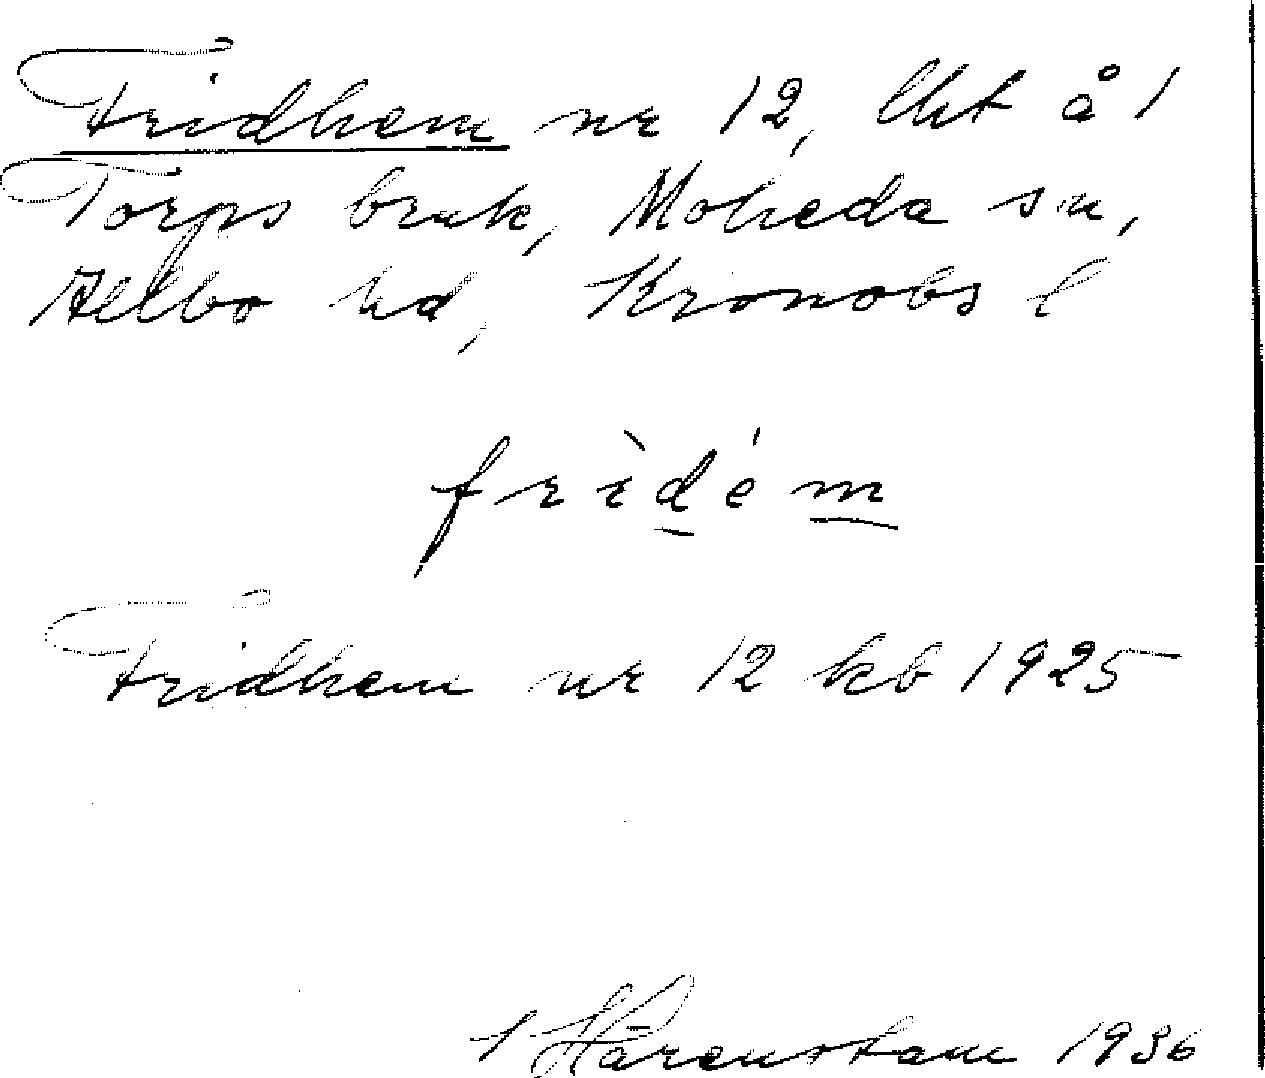 Fridhem nr 12, lht å 1
Torps bruk, Moheda sn,
Allbo hd, Kronobs l
frìdém
Fridhem nr 12 kb 1925
Härenstam 1936